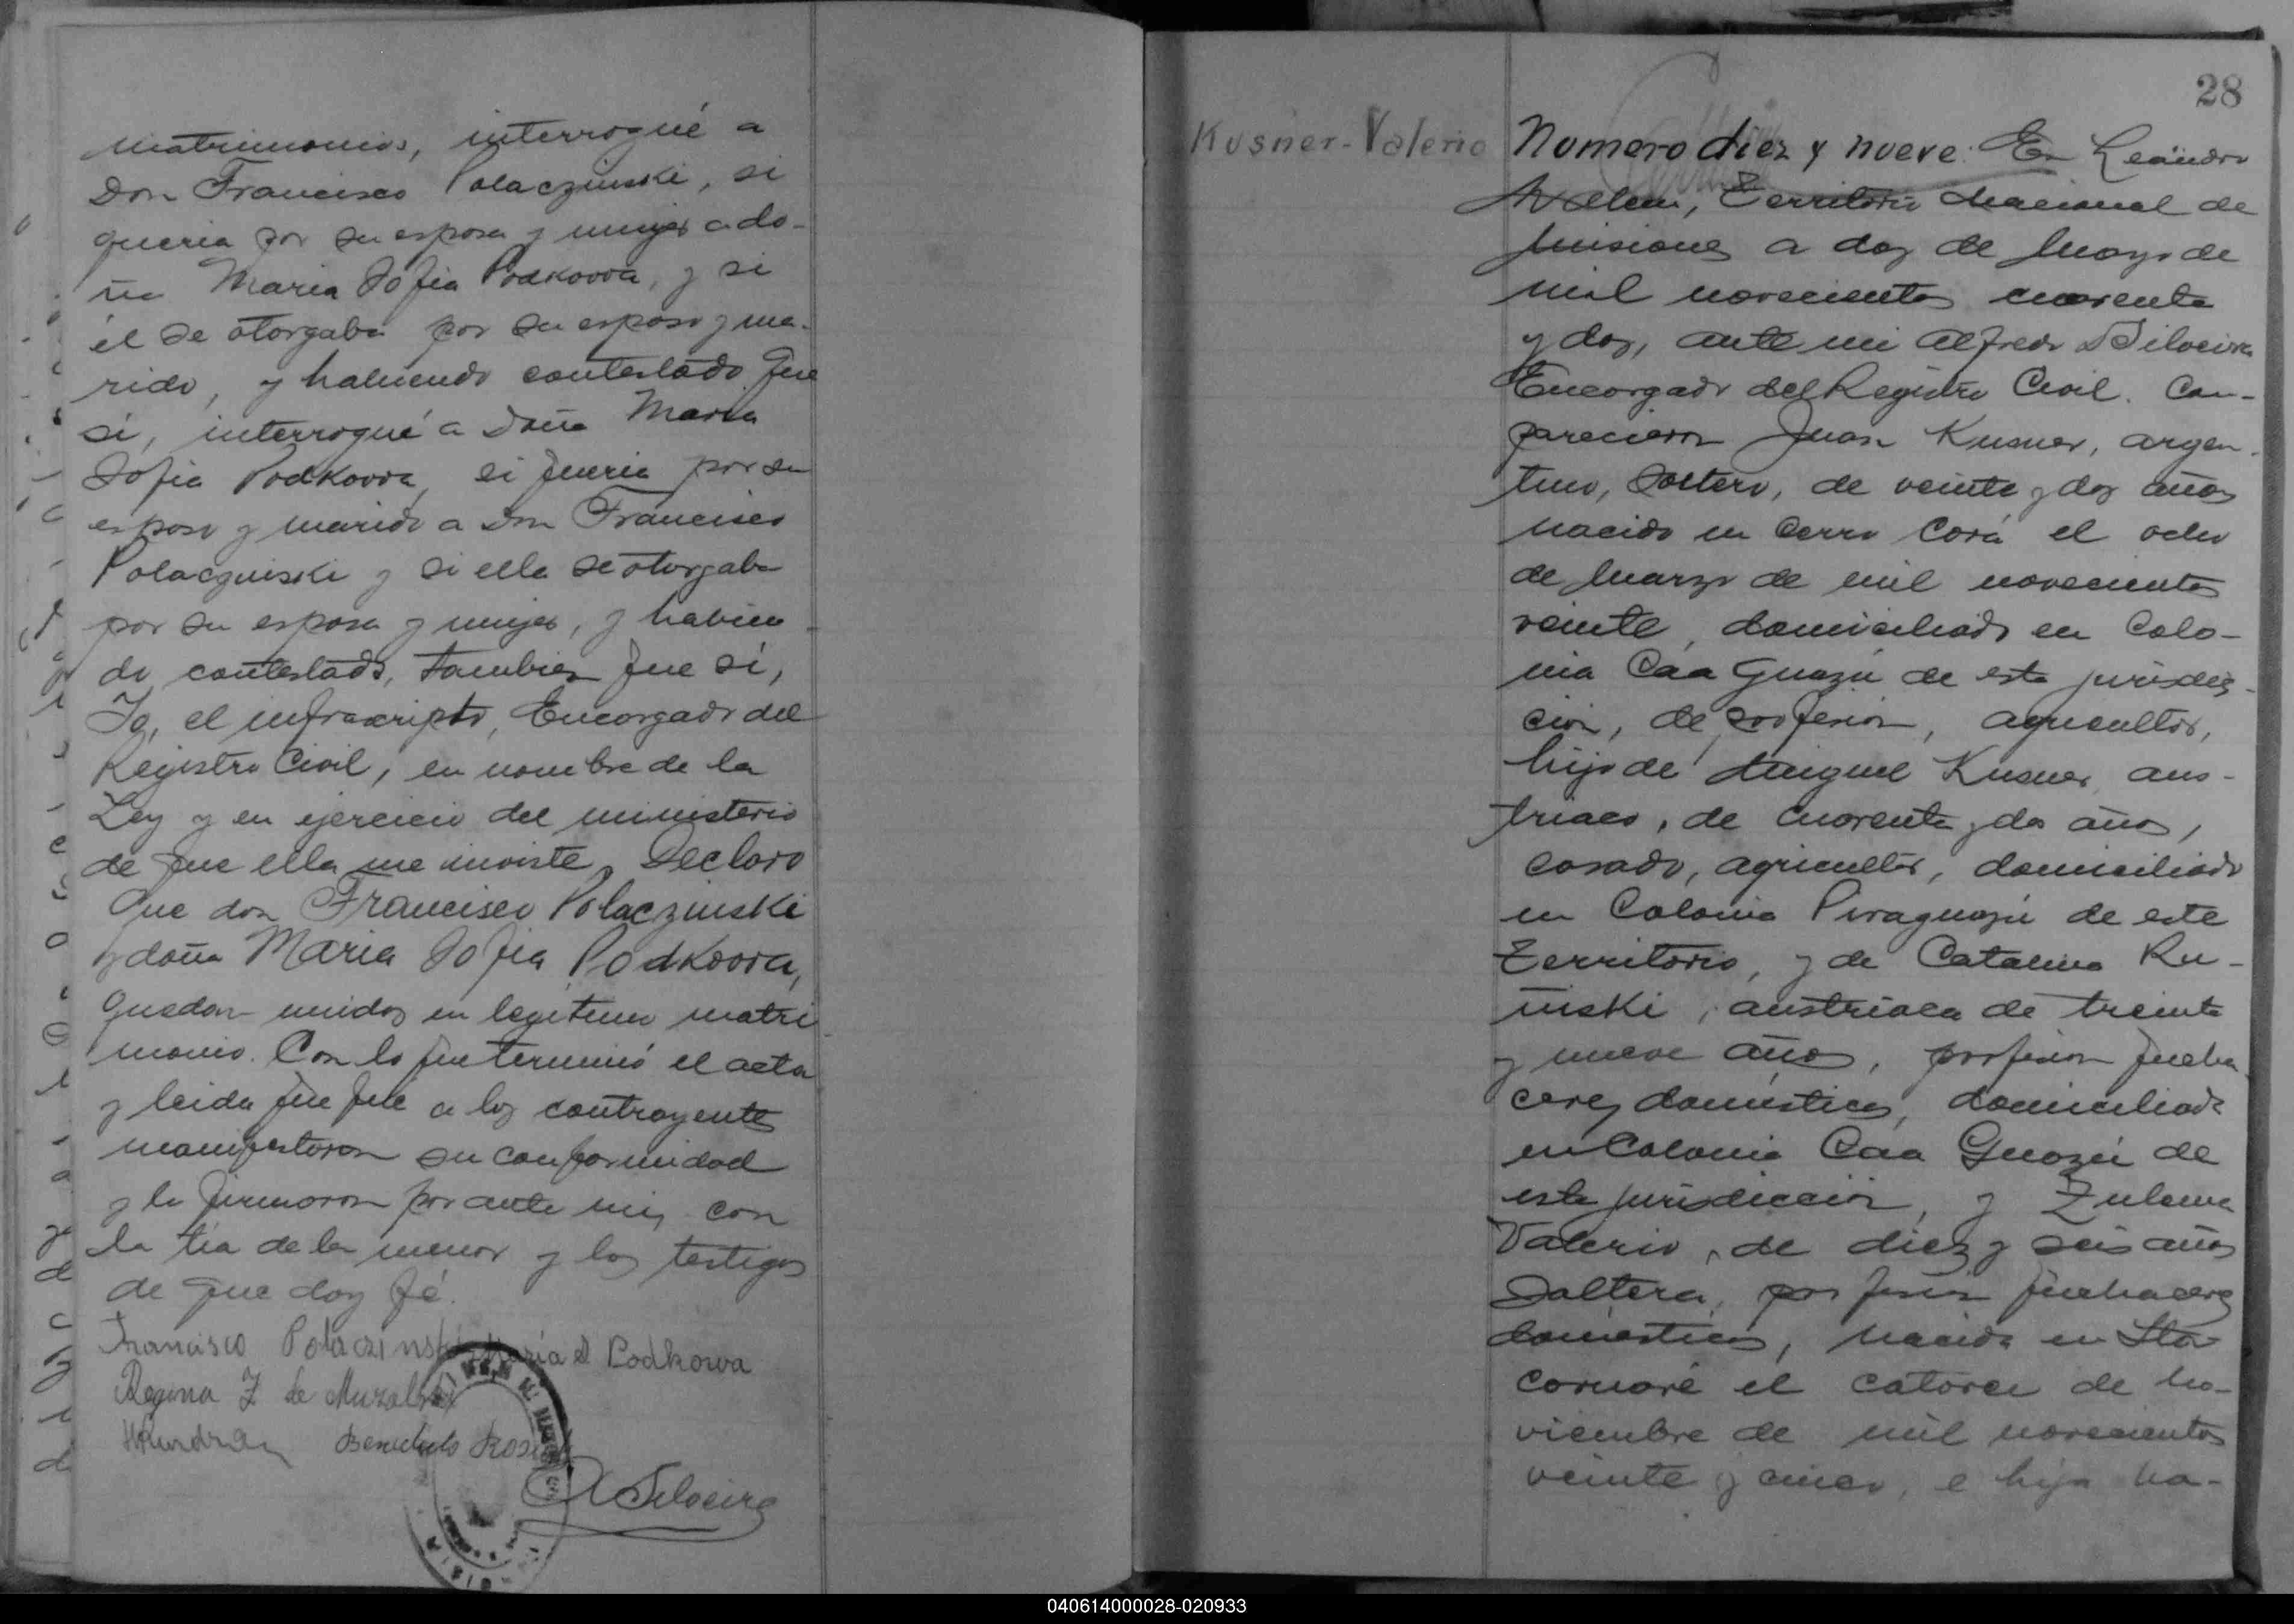 matrimonios, interrogué a
Don Francisco Polaczinski, si
queria por su esposa y mujer a do-
ña Maria Sofia Podkowa, y si
él se otorgaba por su esposo y ma-
rido, y habiendo contestado que
si, interrogué a Doña Maria
Sofia Podkowa, si queria por su
esposo y marido a Don Francisco
Polaczinski y si ella se otorgaba
por su esposa y mujer, y habien-
do contestado, tambien que si,
Yo, el infrascripto, Encargado del
Registro Civil, en nombre de la
Ley y en ejercicio del ministerio
de que ella me inviste, Declaro
Que don Francisco Polaczinski
y doña Maria Sofia Podkowa,
quedan unidos en legitimo matri
monio. Con lo que terminó el acta
y leida que fué a los contrayentes
manifestaron su conformidad
y la firmaron por ante mi, con
la tia de la menor y los testigos
de que doy fé.
Francisco Polaczinski Maria S Podkowa
Regina Z de
Benedicto
A Silveira
28
Kusner-Valerio
Numero diez y nueve. En Leandro
N Alem, Territorio Nacional de
Misiones a dos de Mayo de
mil novecientos cuarenta
y dos, ante mi Alfredo Silveira
Encargado del Registro Civil. Com-
parecieron Juan Kusner, argen-
tino, Soltero, de veinte y dos años
nacido en Cerro Corá el ocho
de Marzo de mil novecientos
veinte, domiciliado en Colo-
nia Caa Guazú de esta jurisdic-
ción, de profesion, agricultor,
hijo de Miguel Kusner, aus-
triaco, de cuarenta y dos años,
casado, agricultor, domiciliado
en Colonia Piraguazú de este
Territorio, y de Catalina Ru-
inski, austriaca de treinta
y nueve años, profesion queha
ceres domesticos, domiciliada
en Colonia Caa Guazú de
esta jurisdicción, y Zulema
Valerio, de diez y seis años
Soltera, profesion quehaceres
domesticos, nacida en Sta
el catorce de no-
viembre de mil novecientos
veinte y cinco, e hija na-
040614000028-020933